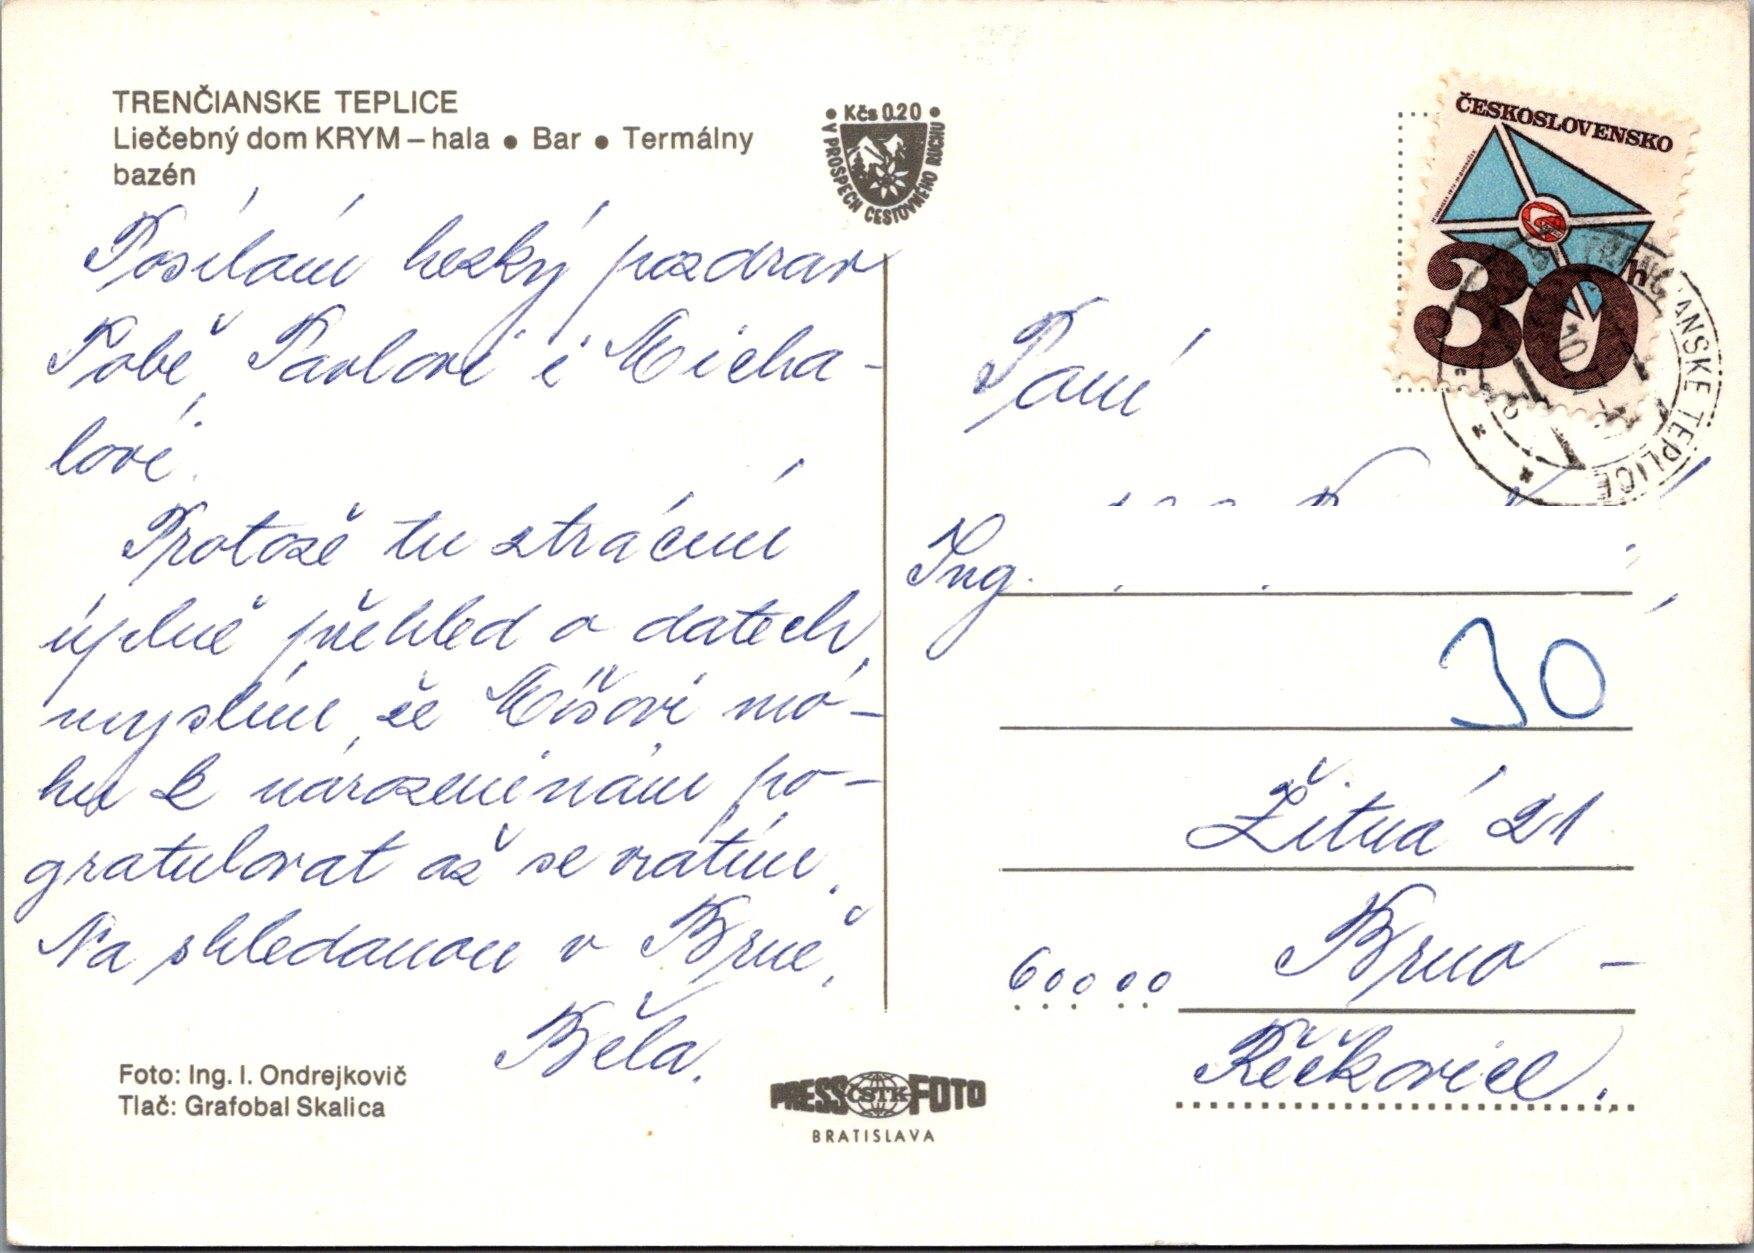 TRENČIANSKE TEPLICE
Liečebný dom KRYM – hala ● Bar ● Termálny
bazén
Posílám hezký pozdrav
Tobě, Pavlovi i Micha-
lovi.
Protože tu ztrácím
úplně přehled o datech,
myslím, že Míšovi mo-
hu k narozeninám po-
gratulovat až se vrátím.
Na shledanou v Brně,
Běla.
Foto: Ing. I. Ondrejkovič
Tlač: Grafobal Skalica
• Kčs 0.20 •
V PROSPECH CESTOVNÉHO RUCHU
PRESS ČSTK FOTO
BRATISLAVA
ČESKOSLOVENSKO
30h
ANSKE TEPLICE
Paní
Ing.
30
Žitná 21
60000 Brno -
Řečkovice.